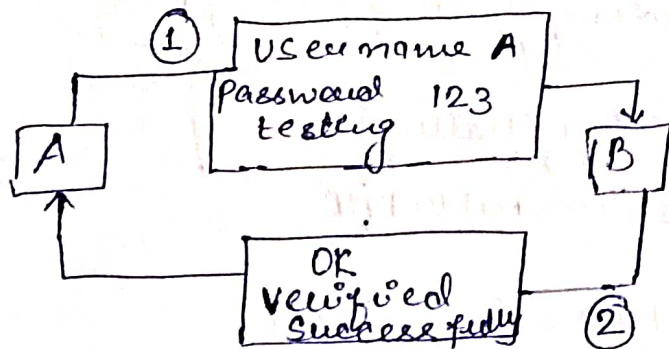 1
Username A
Password 123
testing
A
B
OK
Verified
Successfully
2